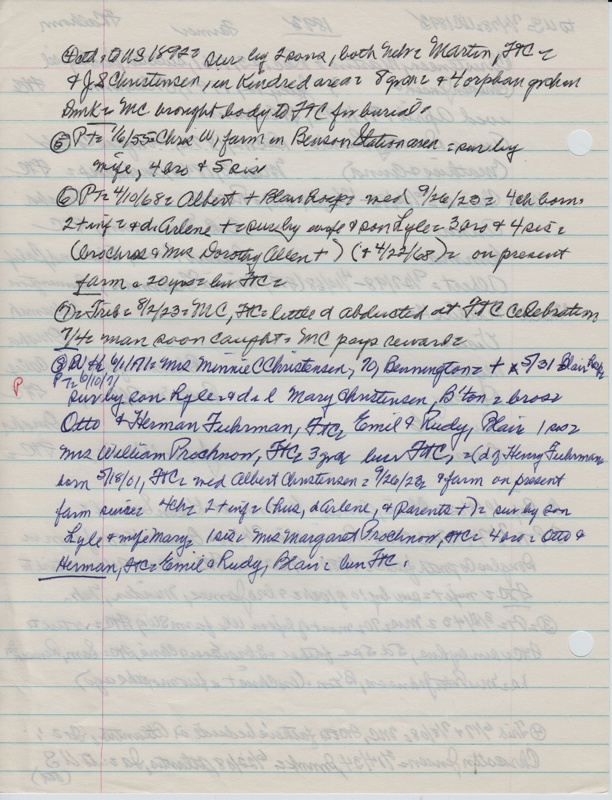 to US 1892 = sur by 2 sons, both Neb = Martin, FtC =
& J S Christensen, in Kindred area = 8 & 4 orphan
= MC brought body to FtC for burial.
⑤ PT = 1/6/55 = Chris W, farm in Benson Station area = sur by
wife, 4 bro & 5 sis
⑥ PT = 4/10/68 = Albert + Blair Hosp = med 9/26/23 = 4ch born =
2 + inf = & d Arlene + = sur by wife & son Lyle = 3 bro & 4 sis =
& Mrs Dorothy Allen + ) (+ 4/22/68) = on present
farm = 20 yrs = bur FtC =
⑦ = Trib = 8/2/23 = MC, FtC = little d abducted at FtC celebration
7/4 = man soon caught = MC pays reward =
⑧ 6/1/71 = Mrs Minnie C Christensen, 70, Bennington = + 5/31 Blair Hosp
P PT = 6/10/71
sur by son Lyle = & d-i-l Mary Christensen, B'ton = bros =
Otto & Herman Fuhrman, FtC, Emil & Rudy, Blair 1 sis =
Mrs William Prochnow, FtC = 3 bur FtC, = (d of Henry Fuhrman
born 5/18/01, FtC = med Albert Christensen = 9/26/23 & farm on present
farm since = 4ch = 2 + inf = (hus, d Arlene, & Parents +) = sur by son
Lyle & wife Mary = 1 sis = Mrs Margaret Prochnow, FtC = 4 bro = Otto &
Herman, FtC = Emil & Rudy, Blair = bur FtC.